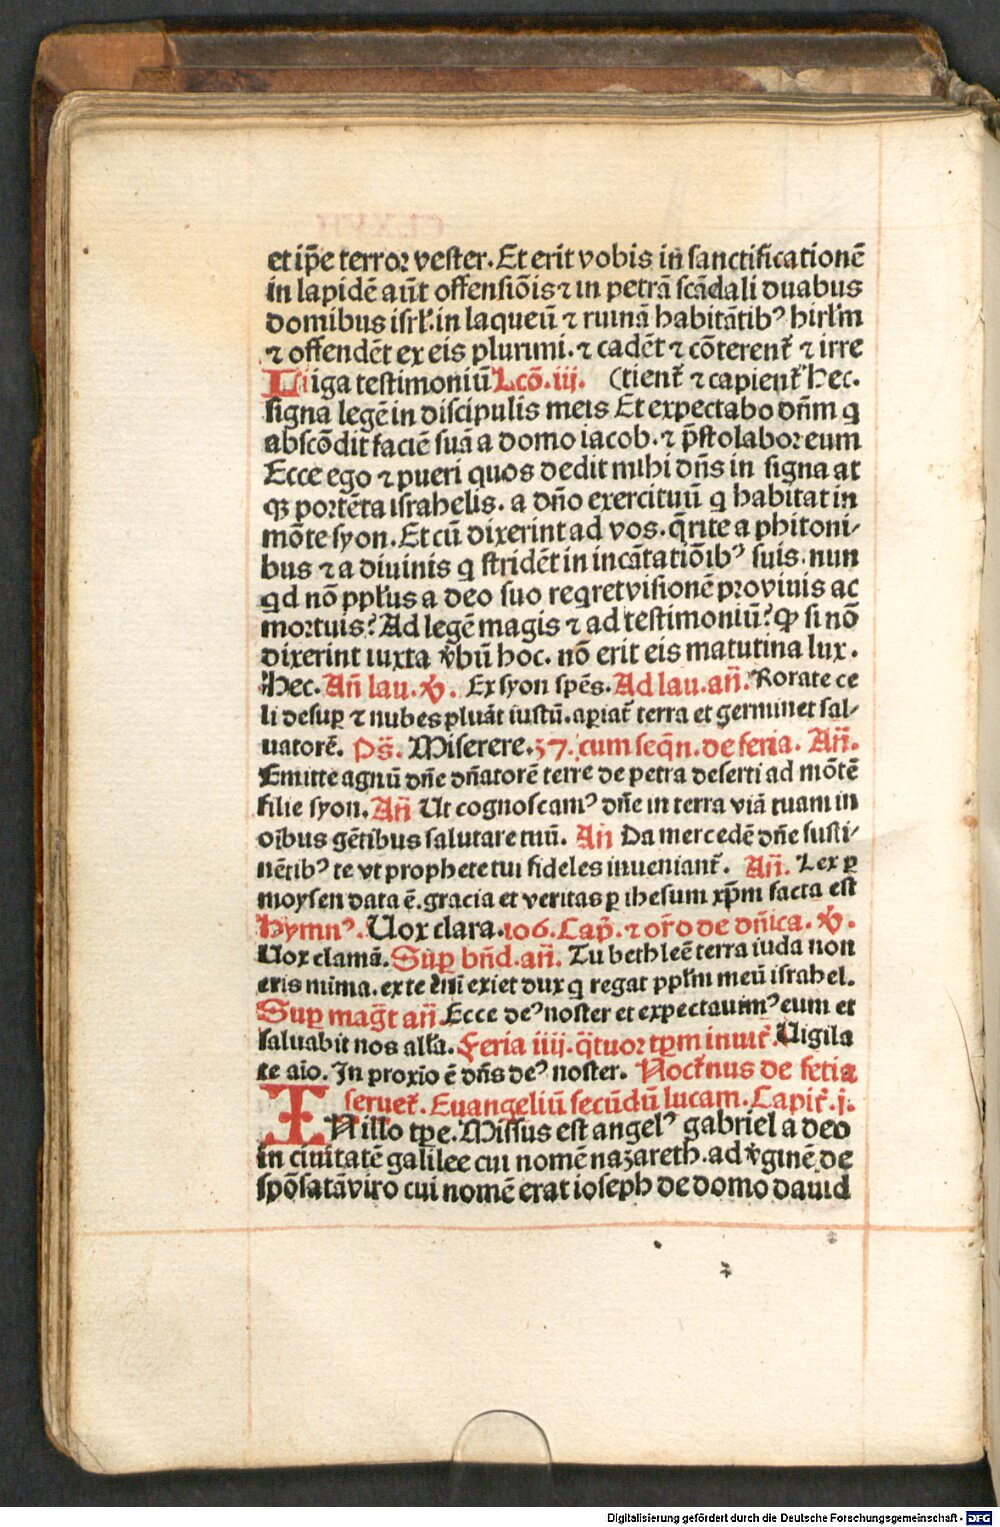 et ip̄e terror vester. Et erit vobis in sanctificationē
in lapidē aūt offensiōis ⁊ in petrā scādali duabus
domibus isrl̄. in laqueū ⁊ ruinā habitātibꝰ hirl̄m
⁊ offendēt ex eis plurimi. ⁊ cadēt ⁊ cōterent᷑ ⁊ irre
Liga testimoniū Lcō. iij. (tient᷑ ⁊ capient᷑ Hec.
signa legē in discipulis meis Et expectabo dn̄m q
abscōdit faciē suā a domo iacob. ⁊ p̄stolabor eum
Ecce ego ⁊ pueri quos dedit mihi dn̄s in signa at
qꝫ portēta israhelis. a dn̄o exercituū q habitat in
mōte syon. Et cū dixerint ad vos. q̄rite a phitoni⸗
bus ⁊ a diuinis q stridēt in incātatiōibꝰ suis. nun
qd nō ppl̄us a deo suo reqret visionē pro viuis ac
mortuis? Ad legē magis ⁊ ad testimoniū? ꝙ si nō
dixerint iuxta v̄bū hoc. nō erit eis matutina lux.
Hec. An̄ lau. ℣. Ex syon spēs. Ad lau. an̄. Rorate ce
li desuꝑ ⁊ nubes pluāt iustū. aꝑiat᷑ terra et germinet sal⸗
uatorē. Ps̄. Miserere. 57. cum seqn̄. de feria. An̄.
Emitte agnū dn̄e dn̄atorē terre de petra deserti ad mōtē
filie syon. An̄ Ut cognoscamꝰ dn̄e in terra viā tuam in
oībus gētibus salutare tuū. An̄ Da mercedē dn̄e susti⸗
nētibꝰ te vt prophete tui fideles inueniant᷑. An̄. Lex ꝑ
moysen data ē. gracia et veritas ꝑ ihesum xp̄m facta est
Hymnꝰ. Uox clara. 106. Cap̄. ⁊ or̄o de dn̄ica. ℣.
Uox clamā. Suꝑ bn̄d. an̄. Tu bethleē terra iuda non
eris mīma. ex te em̄ exiet dux q regat ppl̄m meū israhel.
Suꝑ maḡt an̄. Ecce deꝰ noster et expectauimꝰ eum et
saluabit nos all̄a. Feria iiij. q̄tuor tp̄m inuit᷑. Uigila
te aīo. In proxīo ē dn̄s deꝰ noster. Noct᷑nus de feria
seruet᷑. Euangeliū secūdū lucam. Capit᷑. j.
IN illo tp̄e. Missus est angelꝰ gabriel a deo
in ciuitatē galilee cui nomē nazareth. ad v̄ginē de
spōsatā viro cui nomē erat ioseph de domo dauid
Digitalisierung gefördert durch die Deutsche Forschungsgemeinschaft - DFG